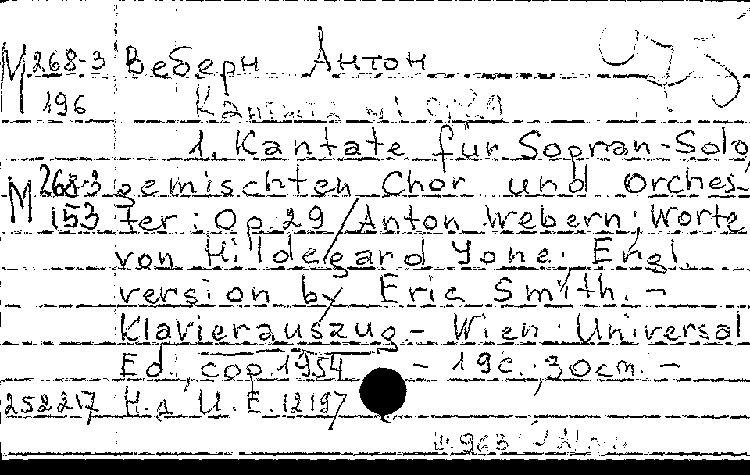 М 268-3 Веберн Антон
196 Кантата № 1 op 29
1. Kantate für Sopran-Solo
М 268-3 gemischten Chor und Orches-
153 ter: Op. 29 / Anton Webern; Worte
von Hildegard Jone. Engl.
version by Eric Smith. –
Klavierauszug – Wien: Universal
Ed., cop. 1954 – 19 c.; 30cm. –
252217 Н.д. U. E. 12197